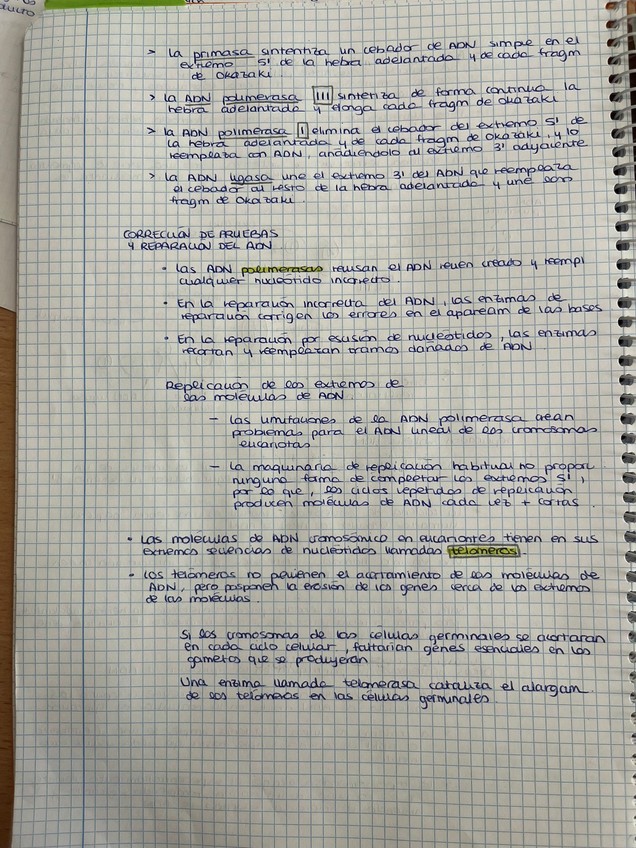 > La primasa sintentiza un cebador de ADN simple en el
extremo 5' de la hebra adelantada y de cada fragm
de Okazaki
> La ADN polimerasa III sintetiza de forma continua la
hebra adelantada y elonga cada fragm de Okazaki
> la ADN polimerasa I elimina el cebador del extremo 5' de
la hebra adelantada y de cada fragm de Okazaki, y lo
reemplaza con ADN, anadiéndolo al extremo 3' adyacente
> La ADN ligasa une el extremo 3' del ADN que reemplaza
el cebador al resto de la hebra adelantada y une los
fragm de Okazaki.
CORRECCIÓN DE PRUEBAS
Y REPARACIÓN DEL ADN
· Las ADN polimerasas revisan el ADN recién creado y reempl
cualquier nucleótido incorrecto.
· En la reparación incorrecta del ADN, las enzimas de
reparación corrigen los errores en el apaream de las bases
· En la reparación por escisión de nucleótidos, las enzimas
recortan y reemplazan tramos dañados de ADN.
Replicación de los extremos de
las moléculas de ADN
- Las limitaciones de la ADN polimerasa crean
problemas para el ADN lineal de los cromosomas
eucariotas
- La maquinaria de replicación habitual no propor
ninguna forma de completar los extremos 5',
por lo que, los ciclos repetidos de replicación
producen moléculas de ADN cada vez + cortas.
· Las moléculas de ADN cromosómico en eucariontes tienen en sus
extremos secuencias de nucleótidos llamadas telómeros.
· Los telómeros no previenen el acortamiento de las moléculas de
ADN, pero posponen la erosión de los genes cerca de los extremos
de las moléculas.
Si los cromosomas de las células germinales se acortaran
en cada ciclo celular, faltarían genes esenciales en los
gametos que se produjeran
Una enzima llamada telomerasa cataliza el alargam.
de los telómeros en las células germinales.